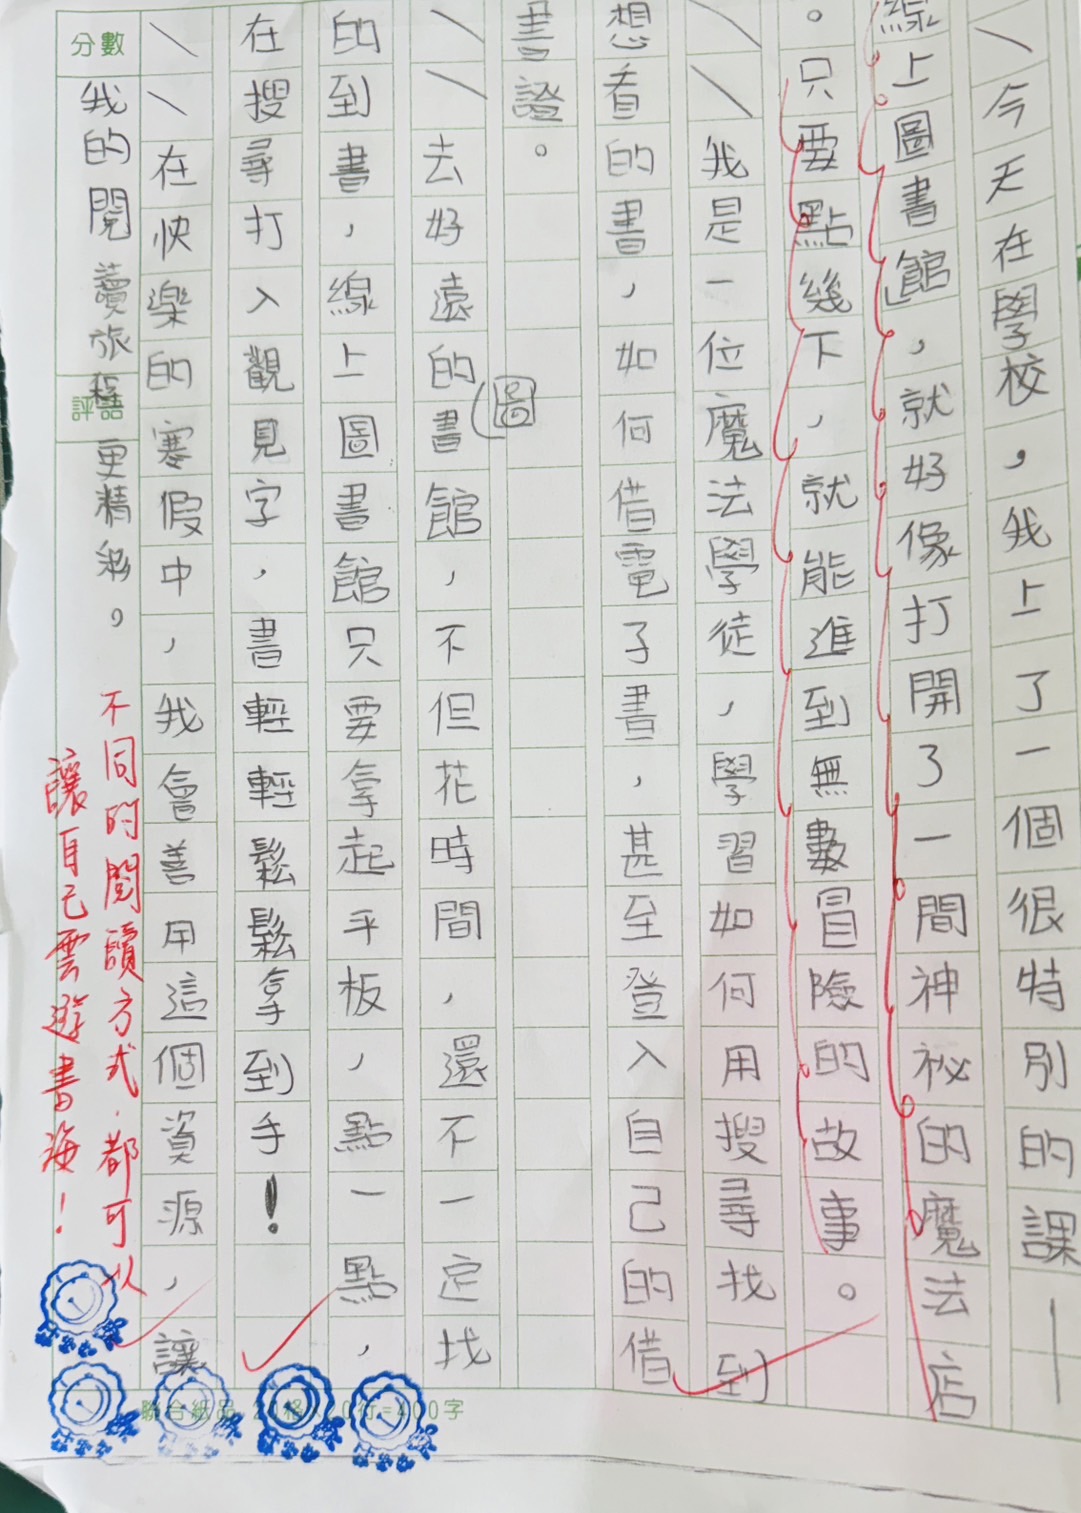 今天在學校，我上了一個很特別的課—
線上圖書館」，就好像打開了一間神祕的魔法店
。只要點幾下，就能進到無數冒險的故事。
我是一位魔法學徒，學習如何用搜尋找到
想看的書，如何借電子書，甚至登入自己的借
書證。
去好遠的書館，不但花時間，還不一定找
圖
的到書，線上圖書館只要拿起平板，點一點，
在搜尋打入觀見字，書輕輕鬆鬆拿到手！
在快樂的寒假中，我會善用這個資源，讓
我的閱讀旅程更精彩。
不同的閱讀方式．都可以
讓自己雲遊書海！
分數
評語